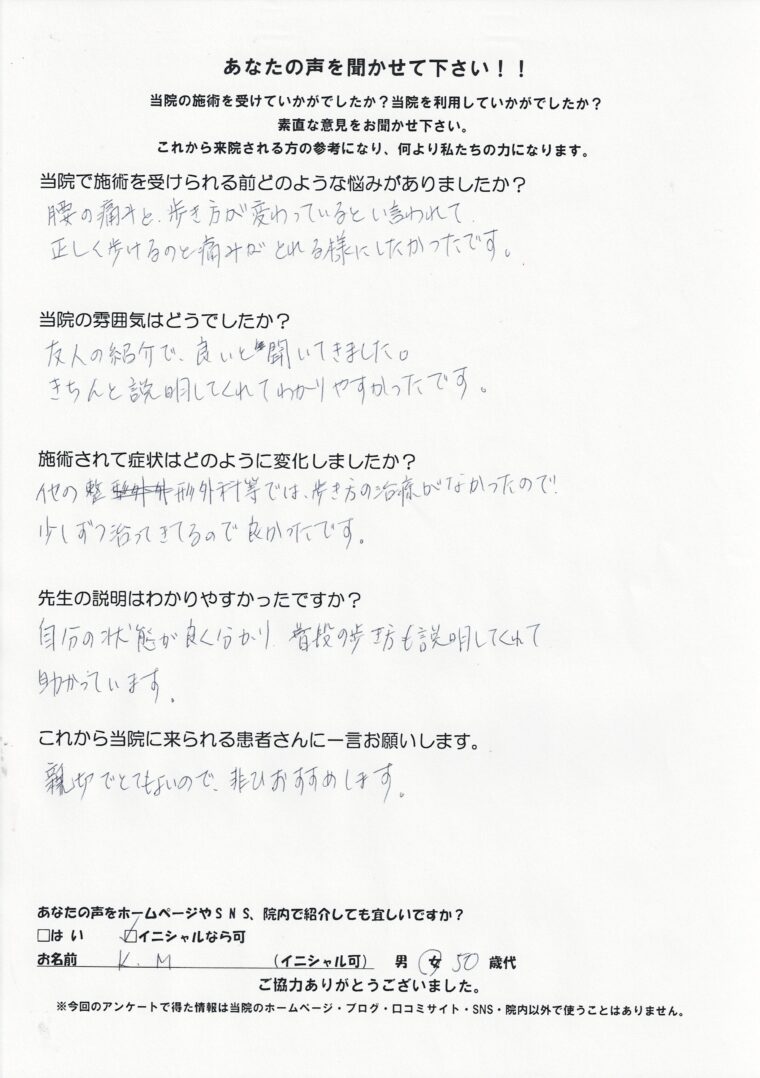 あなたの声を聞かせて下さい！！
当院の施術を受けていかがでしたか？当院を利用していかがでしたか？
素直な意見をお聞かせ下さい。
これから来院される方の参考になり、何より私たちの力になります。
当院で施術を受けられる前どのような悩みがありましたか？
腰の痛みと、歩き方が変わっているとい言われて、
正しく歩けるのと痛みがとれる様にしたかったです。
当院の雰囲気はどうでしたか？
友人の紹介で、良いと聞いてきました。
きちんと説明してくれてわかりやすかったです。
施術されて症状はどのように変化しましたか？
他の整形外科等では、歩き方の治療がなかったので
少しずつ治ってきてるので良かったです。
先生の説明はわかりやすかったですか？
自分の状態が良く分かり、普段の歩き方も説明してくれて
助かっています。
これから当院に来られる患者さんに一言お願いします。
親切でとてもいいので、非ひおすすめします。
あなたの声をホームページやＳＮＳ、院内で紹介しても宜しいですか？
□はい ☑イニシャルなら可
お名前 K.M （イニシャル可） 男 女 50 歳代
ご協力ありがとうございました。
※今回のアンケートで得た情報は当院のホームページ・ブログ・口コミサイト・SNS・院内以外で使うことはありません。